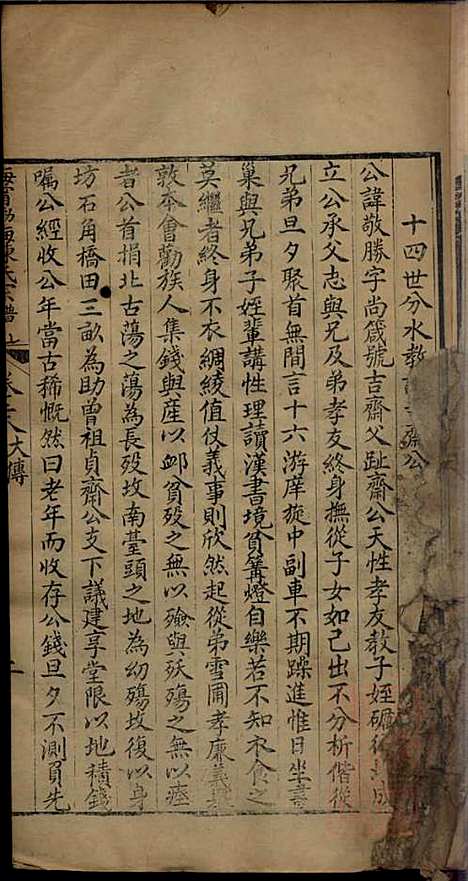 十四世分水教齋公
公諱敬勝字尚箴號吉齋父趾齋公天性孝友教子姪碾成
立公承父志與兄及弟孝友終身撫從子女如己出不分析偕從
兄弟旦夕聚首無間言十六游庠旋中副車不期躁進惟日坐書
巢與兄弟子姪輩講性理讀漢書境貧篝燈自樂若不知衣食之
莫繼者終身不衣綢綾值仗義事則欣然起從弟雪圃孝廉義
敦本會勸族人集錢與産以䘏貧殁之無以殮與殀殤之無以瘞
者公首捐北古蕩之蕩為長殁坟南臺頭之地為幼殤坟復以身
坊石角橋田三畝為助曽祖貞齋公支下議建享堂限以地積錢
嘱公經收公年當古稀慨然曰老年而收存公錢旦夕不測負先
海寧渤海陳氏宗譜
大傳
二